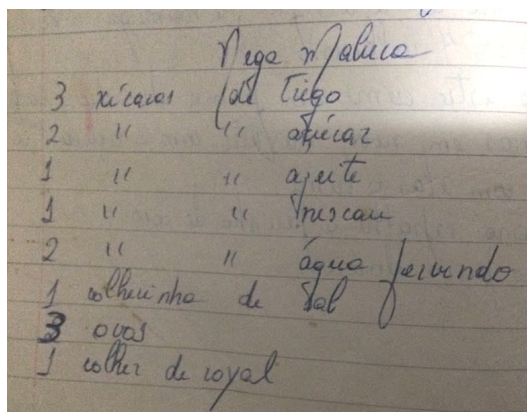 Nega Maluca
3 xícaras de trigo
2 " " açúcar
1 " " azeite
1 " " nescau
2 " " água fervendo
1 colherinha de sal
3 ovos
1 colher de royal